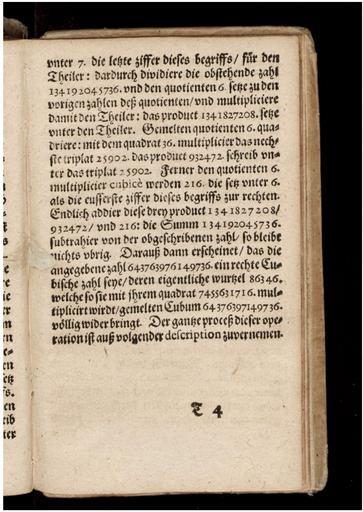 vnter 7. die letzte ziffer dieses begriffs/ für den
Theiler: dardurch dividiere die obstehende zahl
134192045736. vnd den quotienten 6. setze zu den
vorigen zahlen deß quotienten/ vnd multipliciere
damit den Theiler: das product 1341827208. setze
vnter den Theiler. Gemelten quotienten 6. qua-
driere: mit dem quadrat 36. multiplicier das nech-
ste triplat 25902. das product 932472. schreib vn-
ter das triplat 25902. Ferner den quotienten 6.
multiplicier cubicè werden 216. die setz vnter 6.
als die eusserste ziffer dieses begriffs zur rechten.
Endlich addier diese drey product 1341827208/
932472/ vnd 216: die Summ 134192045736.
subtrahier von der obgeschribenen zahl/ so bleibt
nichts vbrig. Darauß dann erscheinet/ das die
angegebene zahl 643763976149736. ein rechte Cu-
bische zahl seye/ deren eigentliche wurtzel 86346.
welche so sie mit jhrem quadrat 7455631716. mul-
tiplicirt wirdt/ gemelten Cubum 643763976149736.
völlig wider bringt. Der gantze proceß dieser ope-
ration ist auß volgender description zuvernemen.
T 4